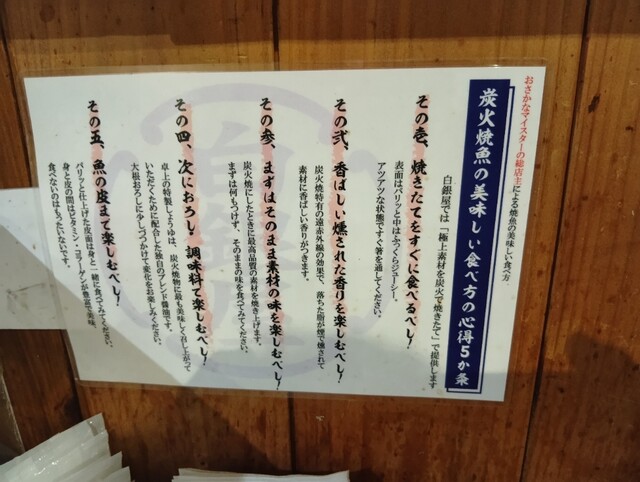 おさかなマイスターの総店主による焼魚の美味しい食べ方
炭火焼魚の美味しい食べ方の心得5か条
白銀屋では「極上素材を炭火で焼きたて」で提供します
その壱、焼きたてをすぐに食べるべし!
表面はパリッと中はふっくらジューシー。
アツアツな状態ですぐ箸を通してください。
その弐、香ばしい燻された香りを楽しむべし!
炭火焼特有の遠赤外線の効果で、落ちた脂が煙で燻されて
素材に香ばしい香りがつきます。
その参、まずはそのまま素材の味を楽しむべし!
炭火焼にしたときに最高品質の素材を焼き上げます。
まずは何もつけず、そのままの味を食べてみてください。
その四、次におろし・調味料で楽しむべし!
卓上の特製しょうゆは、炭火焼物に最も美味しく召し上がって
いただくために配合した独自のブレンド醤油です。
大根おろしに少しづつかけて変化をお楽しみください。
その五、魚の皮まで楽しむべし!
パリッと仕上げた皮面は身と一緒に食べてみてください。
身と皮の間ほどタミン・コラーゲンが豊富で美味。
食べないのはもったいないです。